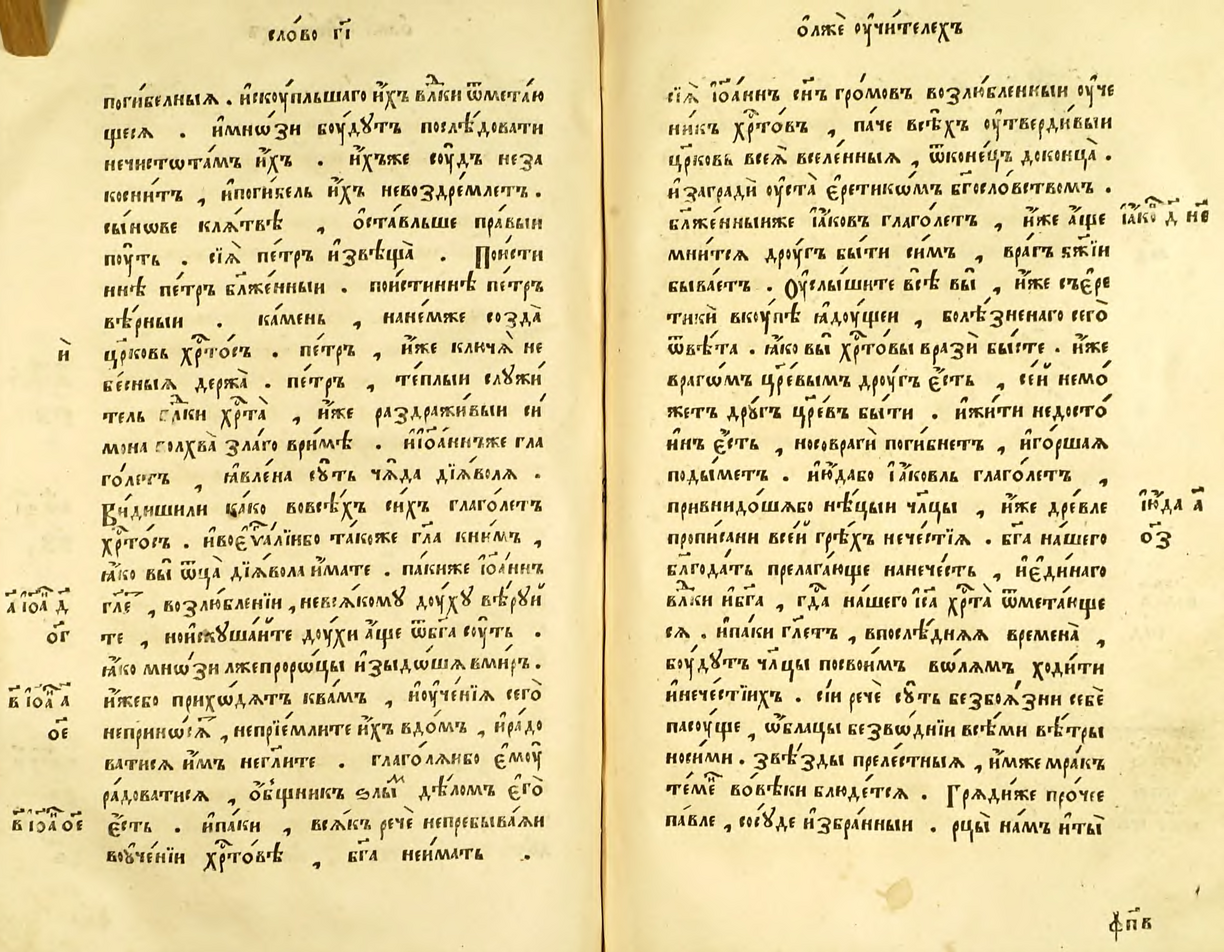 сло́во г҃і
поги́белныѧ . и҆скꙋпльшаго и҆́хъ влⷣки ѿмета́ю
щесѧ . и҆мнѡ́зи бꙋ́дꙋтъ послѣ́довати
нечистѡта́мъ и҆́хъ . и҆́хъже сꙋ́дъ неза
косни́тъ , и҆поги́бель и҆́хъ невоздре́млетъ .
сы́нѡве клѧ́твѣ , ѡ҆ста́вльше пра́выи
пꙋ́ть . сїѧ̀ пе́тръ и҆звѣща̀ . Пои́сти
ннѣ пе́тръ бл҃же́нныи . пои́стиннѣ пе́тръ
вѣ́рныи . ка́мень , нане́мже созда̀
и҃
цр҃ковь хрⷭ҇то́съ . пе́тръ , и҆́же ключѧ̀ не
бе́сныѧ держа̀ . пе́тръ , те́плыи слꙋжи́
тель влⷣки хрⷭ҇та̀ , и҆́же раздражи́выи си́
мона волхва̀ зла́го ври́мѣ . и҆і҆ѡа́ннъже гла
го́летъ , ꙗ҆вле́на сꙋ́ть чѧ̑да дїѧ́волѧ .
Ви́дишили ка́ко вовсѣ́хъ си́хъ глаго́летъ
хрⷭ҇то́съ . и҆воє҆ѵⷢ҇а́лїибо та́коже гл҃а кни́мъ ,
ꙗ҆́ко вы̀ ѿц҃а̀ дїѧ́вола и҆́мате . па́киже і҆ѡа́ннъ
а҃ і҆ѡа́ д҃
гл҃е , возлю́бленїи , невсѧ́комꙋ дꙋ́хꙋ вѣ́рꙋи
ѻ҃г
те , нои҆скꙋша́ите дꙋ́хи а҆́ще ѿбг҃а сꙋ́ть .
ꙗ҆́ко мнѡ́зи лжепрорѡ́цы и҆зыдѡ́шѧ вми́ръ .
в҃ і҆ѡа́ а҃
и҆́жебо прихѡ́дѧтъ ква́мъ , и҆ꙋче́нїѧ сего̀
ѻ҃е
неприносѧ̀ , непрїе́млите и҆́хъ вдо́мъ , и҆ра́до
ватисѧ и҆́мъ негл҃ите . глаго́лѧибо є҆мꙋ̀
ра́доватисѧ , ѻ҆́бщникъ ѕлы́мъ дѣ́ломъ є҆го̀
в҃ і҆ѡа́ ѻ҃е
є҆́сть . и҆па́ки , всѧ́къ речѐ непребыва́ѧи
воꙋче́нїи хрⷭ҇то́вѣ , бг҃а неи́мать .
ѡ҆лжѐ ꙋ҆чи́телехъ
сїѧ̀ і҆ѡа́ннъ сн҃ъ гро́мовъ возлю́бленныи ꙋ҆че
ни́къ хрⷭ҇то́въ , па́че всѣ́хъ ꙋ҆тверди́выи
цр҃ковь всеѧ̀ вселе́нныѧ , ѿконе́цъ доконца̀ .
и҆загради̑ ꙋ҆ста̀ є҆ретикѡ́мъ бг҃осло́вствомъ .
бл҃же́нныиже і҆а́ковъ глаго́летъ , и҆́же а҆́ще
і҆а́ко д҃ не
мни́тсѧ дрꙋ́гъ бы́ти си́мъ , вра́гъ бж҃їи
быва́етъ . Оу҆слы́шите всѣ̀ вы̀ , и҆́же съє҆ре
тики̑ вкꙋ́пѣ ꙗ҆дꙋ́щеи , болѣ́зненаго сего̀
ѿвѣ́та . ꙗ҆́ко вы̀ хрⷭ҇то́вы врази̑ бы́сте . и҆́же
врагѡ́мъ цр҃е́вымъ дрꙋ́гъ є҆́сть , се́и немо́
жетъ дрꙋ́гъ цр҃е́въ бы́ти . и҆жи́ти недосто́
инъ є҆́сть , носовраги̑ поги́бнетъ , и҆го́ршаѧ
поды́метъ . и҆ю҆́дабо і҆а́ковль глаго́летъ ,
привнидо́шѧбо нѣ́цыи чл҃цы , и҆́же дре́вле
і҆ю́да а҃
пропи́сани всеи̑ грѣ́хъ нече́стїѧ . бг҃а на́шего
ѻ҃з
бл҃года́ть прелага́юще нанече́сть , и҆є҆ди́наго
влⷣки и҆бг҃а , гдⷭ҇а на́шего і҆и҃са хрⷭ҇та̀ ѿмета́юще
сѧ . и҆па́ки гл҃етъ , впослѣ́днѧѧ времена̀ ,
бꙋ́дꙋтъ чл҃цы посвои́мъ вѡ́лѧмъ ходи́ти
и҆нече́стїихъ . сі́и речѐ сꙋ́ть безбоѧ́зни себѐ
пасꙋ́ще , ѡ҆́блацы безвѡ́днїи всѣ́ми вѣ́тры
носи́ми . звѣ́зды преле́стныѧ , и҆́мже мра́къ
те́мⸯныи во вѣ́ки блюде́тсѧ . Грѧди́же про́чее
па́вле , сосꙋ́де и҆збра́нныи . рцы̀ на́мъ и҆ты̀
ф҃п҃в